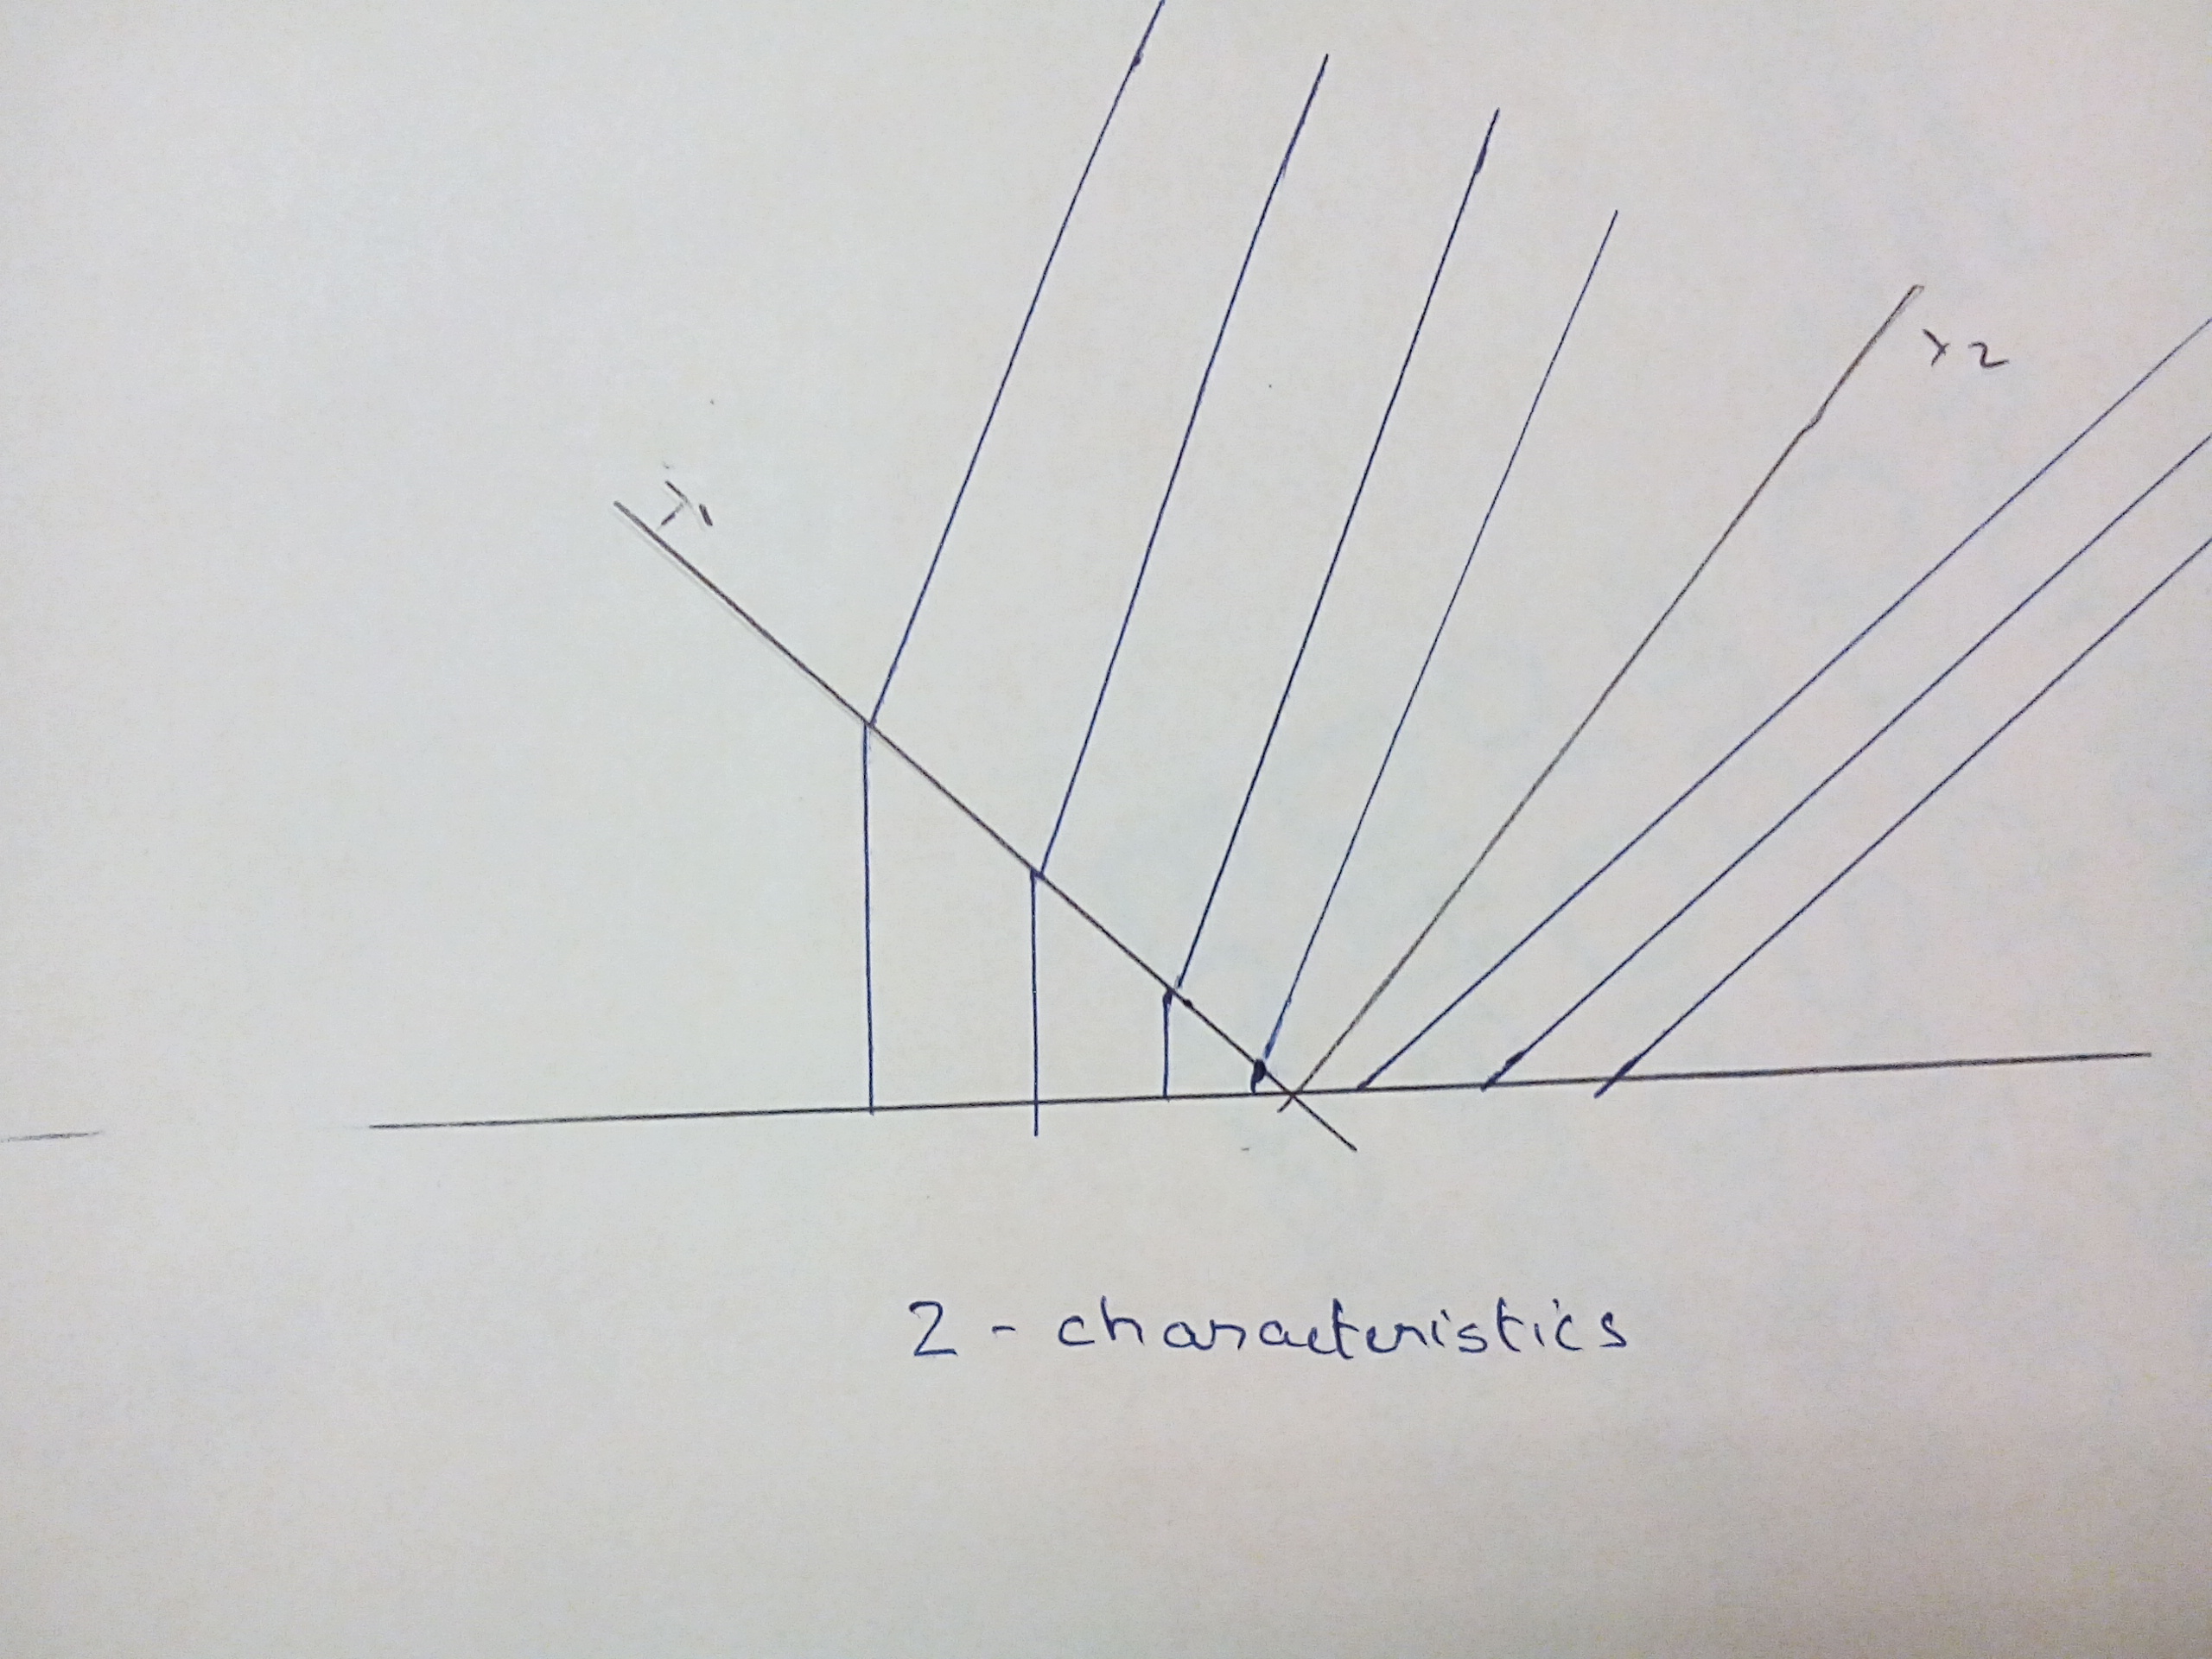 λ1
λ2
2 - characteristics